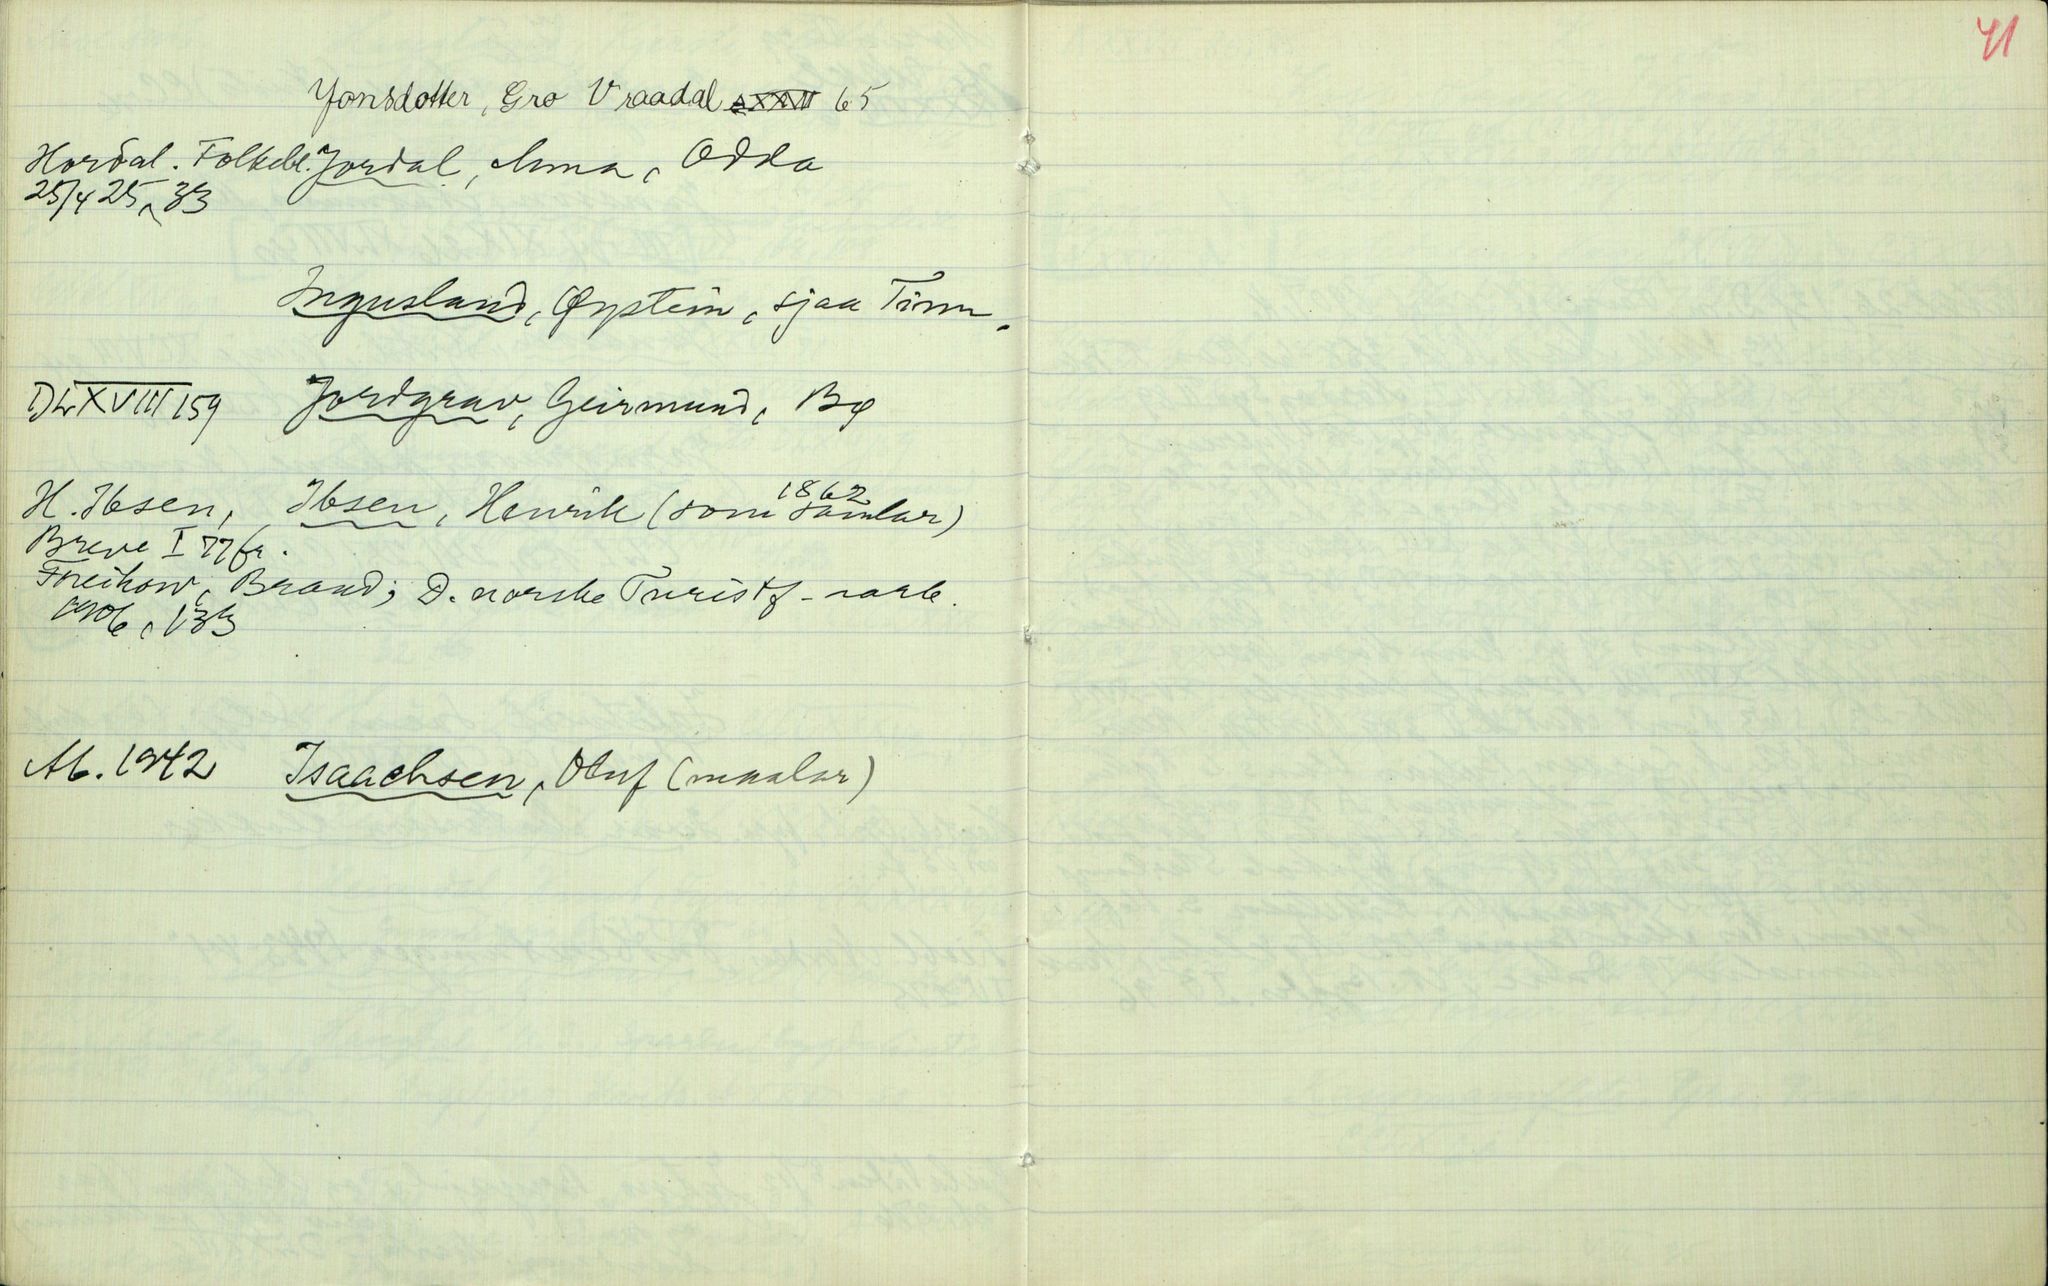 41
Jonsdotter, Gro Vraadal LXXXVII 65
Hordal. Folkebl. Jordal, Anna, Odda
25/4 25, 33
Ingusland, Øystein, sjaa Tinn.
DLXXVIII 159 Jordgrav, Geirmund, Bø
1862
H. Ibsen, Ibsen, Henrik (som samlar)
Breve I 77fr.
Freihow, Brand; D. norske Turistf-aarb.
1906, 133
Ab. 1942 Isaachsen, Oluf (maalar)